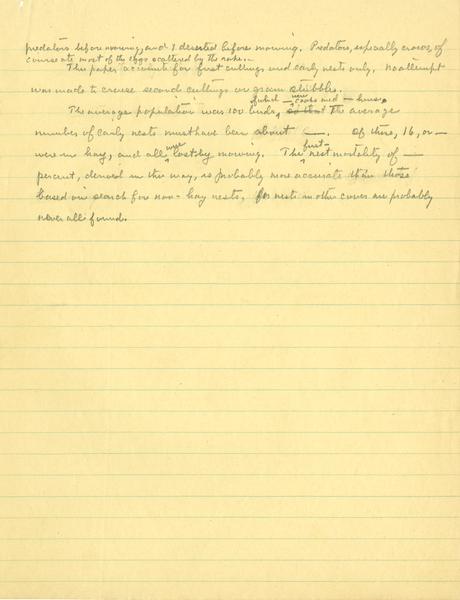 predators before mowing, and 1 deserted before mowing. Predators, especially crows, of
course ate most of the eggs scattered by the rake.
The paper accounts for first cuttings and early nests only. No attempt
was made to cruise second cuttings or grain stubbles.
of which — were cocks and — hens,
The average population was 100 birds, so that The average
number of early nests must have been about —. Of these, 16, or —
were in hay, and all were lost by mowing. The first nest mortality of —
percent, derived in this way, is probably more accurate than those
based on search for non-hay nests, for nests in other cover are probably
never all found.